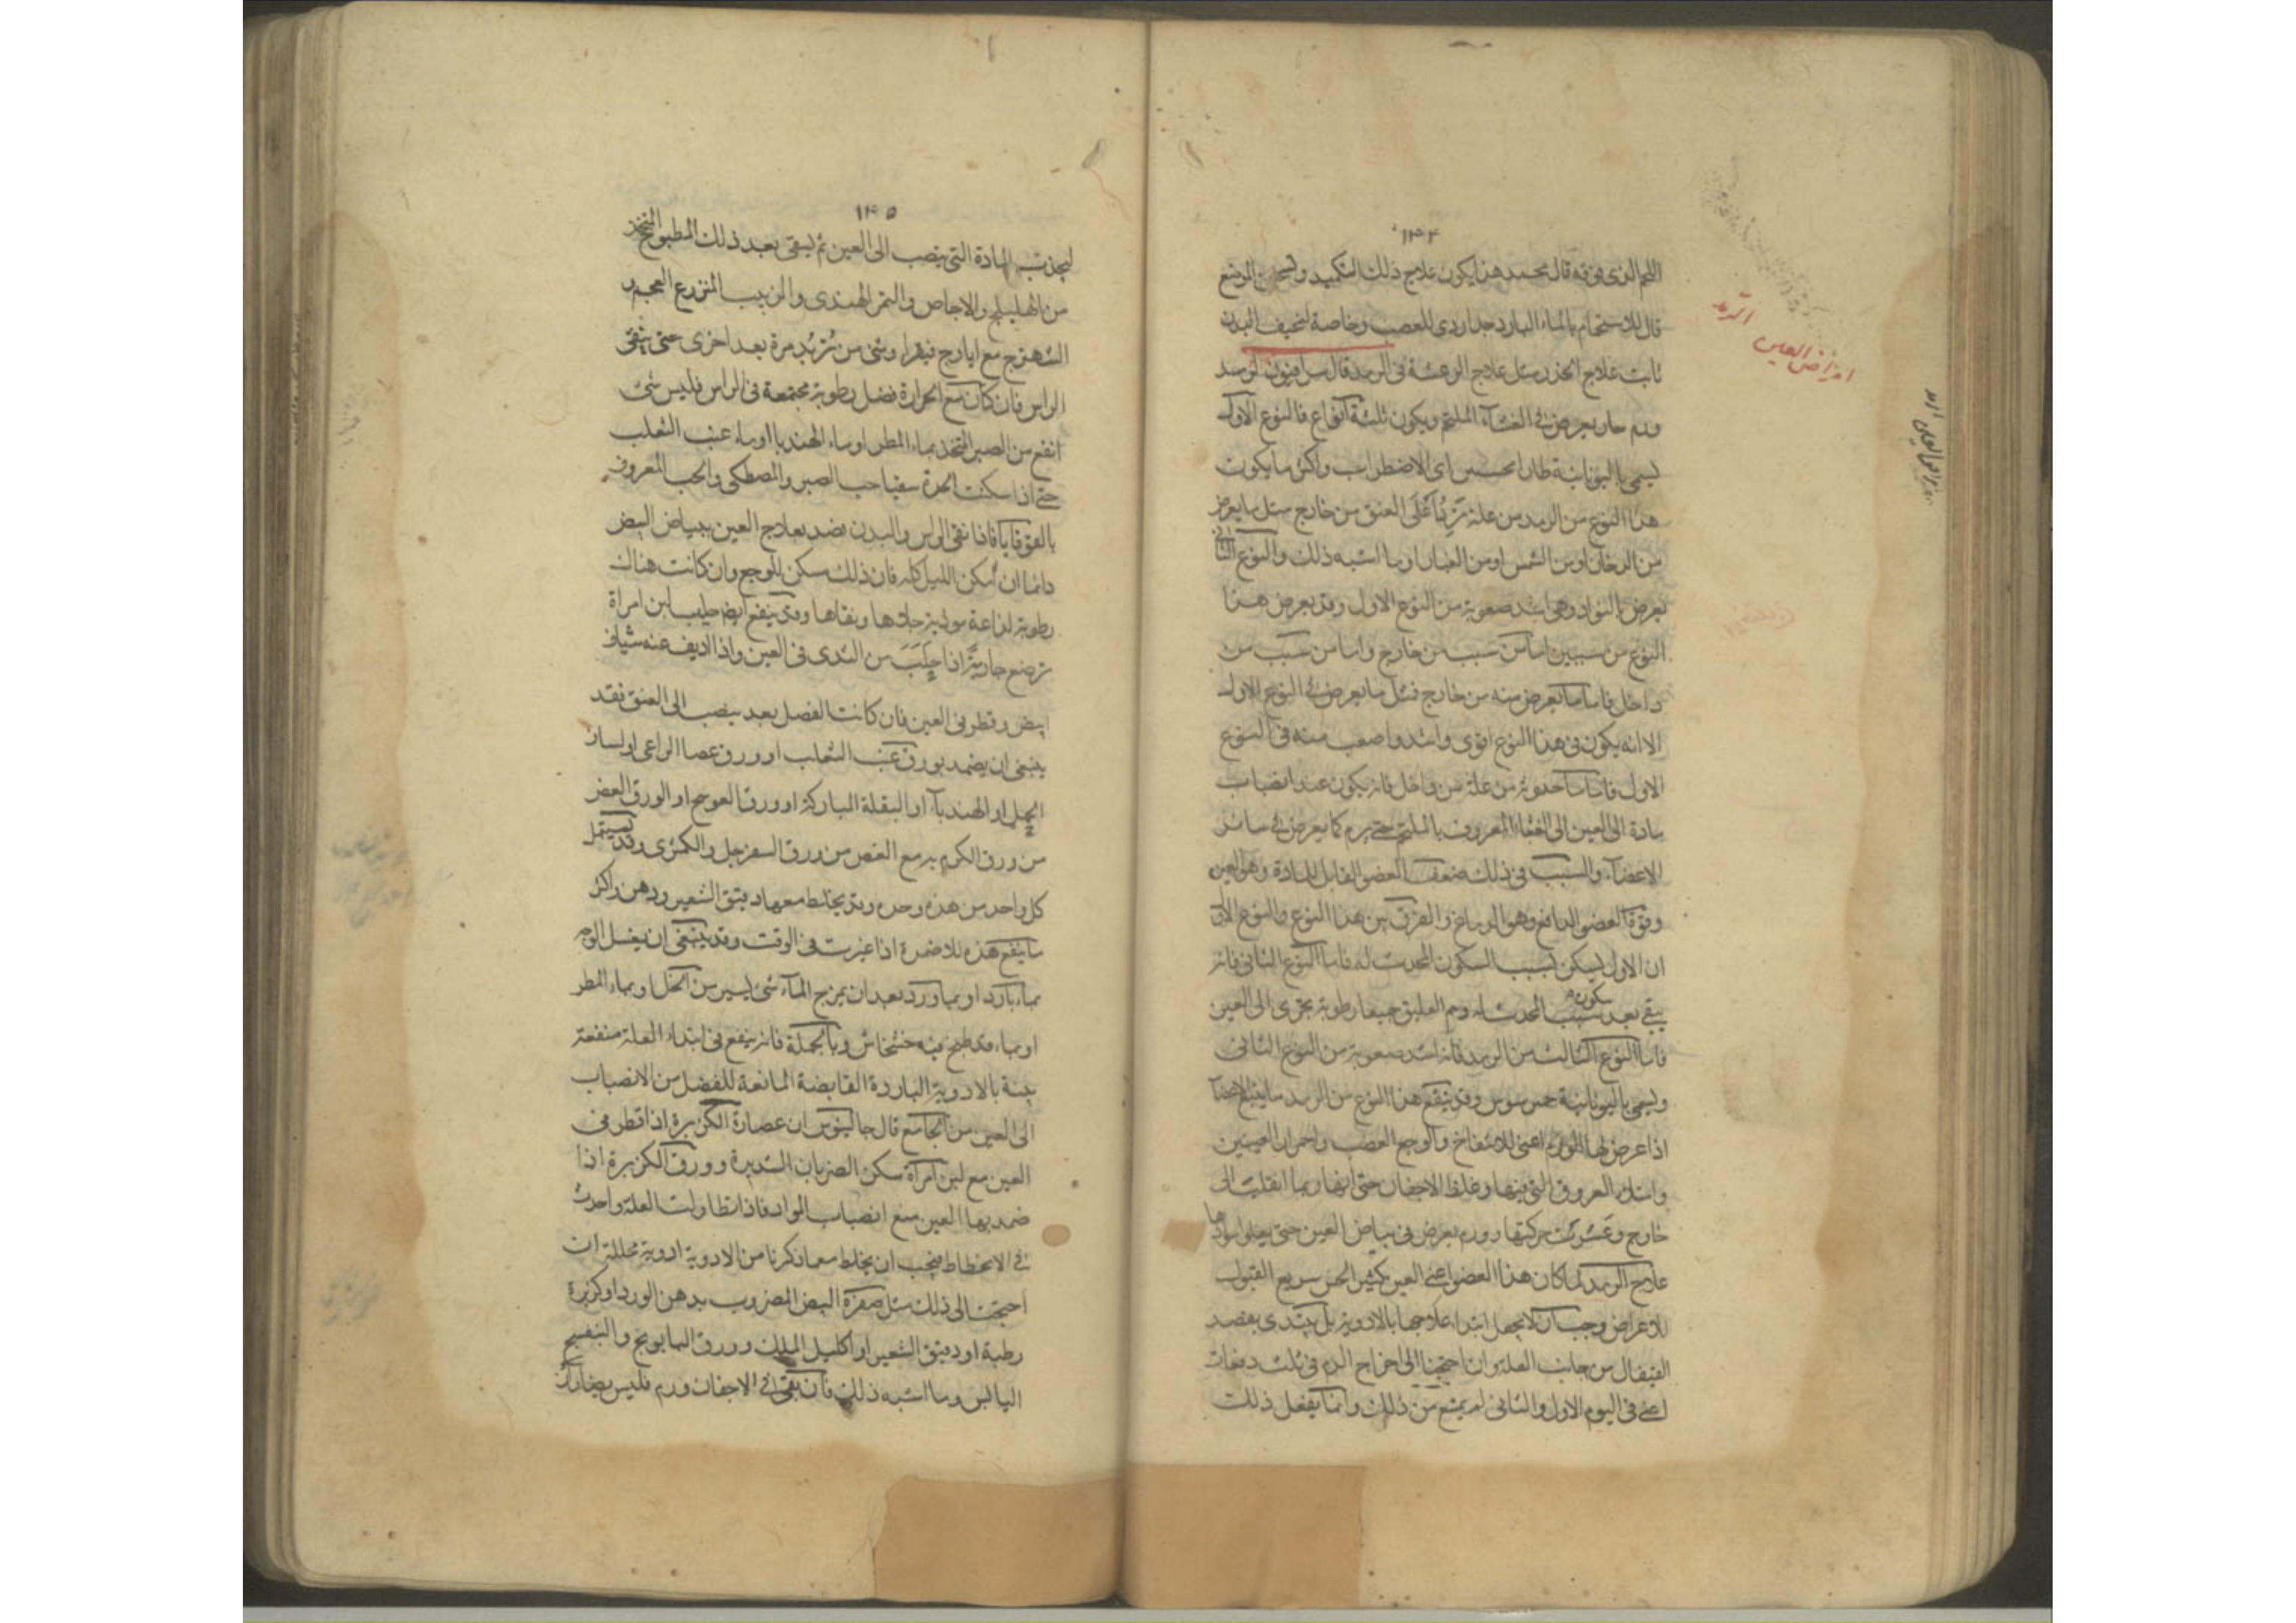 ١٤٤
اللحم الذى فوقه قال محمد هذا يكون علاج ذلك التكميد وتسخين الموضع
قال الاستحمام بالماء البارد جدا ردى للعصب وخاصة لنحيف البدن
ثابت علاج الخدر مثل علاج الرعشة فى الرمد قال سرافيون الرمد
ورم حار يعرض فى الغشآء الملتحم ويكون ثلثة انواع فالنوع الاول
يسمى باليونانية اى الاضطراب واكثر ما يكون
هذا النوع من الرمد من علة على العنق من خارج مثل ما يعرض
من الدخان او من الشمس او من الغبار او ما اشبه ذلك والنوع الثانى
يعرض وهى اشد صعوبة من النوع الاول وقد يعرض هذا
النوع من سببين اما من سبب من خارج واما من سبب من
داخل فاما ما يعرض منه من خارج فمثل ما يعرض فى النوع الاول
الا انه يكون فى هذا النوع اقوى واشد واصعب منه فى النوع
الاول فاما ما حدوثه من علة من داخل فانه يكون عند انصباب
مادة الى العين الى الغشاء المعروف بالملتحم حتى يرم كما يعرض فى سائر
الاعضآء والسبب فى ذلك ضعف العضو القابل للمادة وهو العين
وقوة العضو الدافع وهو الدماغ والفرق بين هذا النوع والنوع الاول
ان الاول يسكن بسبب السكون المحدث له فاما النوع الثانى فانه
يبقى بعد سكون سبب المحدث له رطوبة تجرى الى العين
فاما النوع الثالث من الرمد فانه اشد صعوبة من النوع الثانى
ويسمى باليونانية وقد يتبع هذا النوع من الرمد ما يتبع
اذا عرض لها الورم اعنى الانتفاخ والوجع العصب واحمرار العينين
وامتلاء العروق التى فيها وغلظ الاجفان حتى انها ربما انقلبت الى
خارج وعسرت حركتها وورم يعرض فى بياض العين حتى يعلو سوادها
علاج الرمد لما كان هذا العضو اعنى العين كثير الحس سريع القبول
للاعراض وجب ان لا يجعل ابتداء علاجها بالادوية بل يبتدى بفصد
القيفال من جانب العلة وان احتجنا الى اخراج الدم فى ثلث دفعات
اعنى فى اليوم الاول والثانى لم يمنع من ذلك وانما يفعل ذلك
الرمد
امراض العين
١٤٥
ليجذب المادة التى ينصب الى العين ثم يسقى بعد ذلك المطبوخ المتخذ
من الهليلج والاجاص والتمر الهندى والزبيب المنزوع العجم و
الشهترج مع ايارج فيقرا وشئ من تربد مرة بعد اخرى حتى ينقى
الراس فان كان مع الحرارة فضل رطوبة مجتمعة فى الراس فليس شئ
انفع من الصبر المتخذ بماء المطر او ماء الهندبا او ماء عنب الثعلب
حتى اذا سكنت الحدة سقينا حب الصبر والمصطكى والحب المعروف
بالقوقايا فاذا نقى الراس والبدن نقصد بعلاج العين ببياض البيض
دائما ان امكن الليل كله فان ذلك مسكن للوجع وان كانت هناك
رطوبة لذاعة موذية جلاها ونقاها وقد ينفع ايضا حليب لبن امراة
ترضع جارية اذا حلب من الثدى فى العين واذا اديف عنه شياف
ابيض وقطر فى العين فان كانت الفضل بعد ينصب الى العنق فقد
ينبغى ان يضمد بورق عنب الثعلب او ورق عصا الراعى او لسان
الحمل او الهندبآ او البقلة المباركة او ورق العوسج او الورق الغض
من ورق الكرم مع الغض من ورق السفرجل والكمثرى وقد يستعمل
كل واحد من هذه وحده وقد يخلط معها دقيق الشعير ودهن واكثر
ما ينفع هذه الاضمدة اذا غيرت فى الوقت وقد ينبغى ان يغسل الوجه
بماء بارد او بماورد بعد ان يمزج المآء شئ يسير من الخل او بماء المطر
او بماء قد طبخ فيه خشخاش وبالجملة فانه ينفع فى ابتداء العلة منفعة
بينة بالادوية الباردة القابضة المانعة للفضل من الانصباب
الى العين من الجامع قال جالينوس ان عصارة الكزبرة اذا قطر فى
العين مع لبن امرآة سكن الضربان الشديدة وورق الكزبرة اذا
ضمد بها العين منع انصباب المواد فاذا تطاولت العلة واخذت
فى الانحطاط فيجب ان يخلط مع ما ذكرنا من الادوية ادوية محللة ان
احتجت الى ذلك مثل صفرة البيض المضروب بدهن الورد او كزبرة
رطبة او دقيق الشعير او اكليل الملك وورق البابونج والبنفسج
اليابس وما اشبه ذلك فان بقى فى الاجفان ورم فليس بضار ان